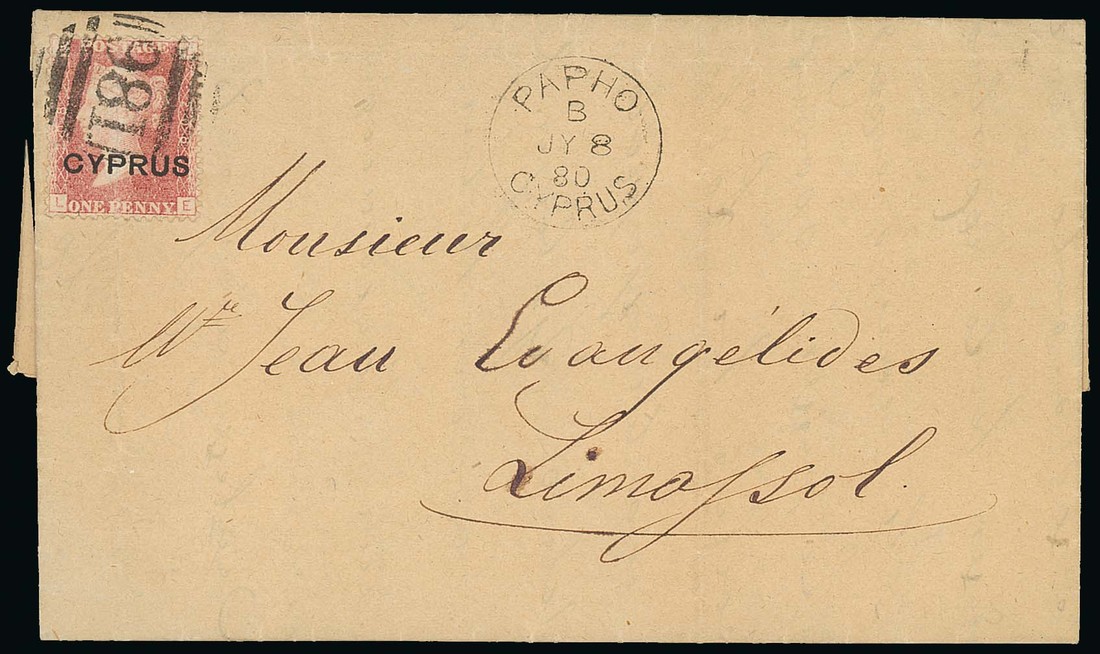 POSTAGE
981
CYPRUS
L E
ONE PENNY
PAPHO
B
JY 8
80
CYPRUS
Monsieur
Jean Evangélides
Limassol.